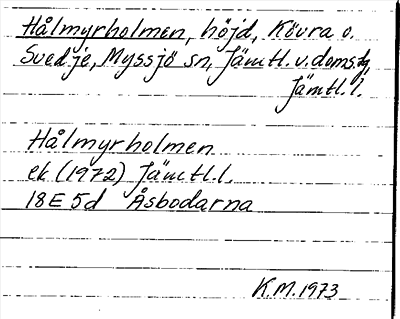 Hålmyrholmen, höjd, Kövra o.
Svedje, Myssjö sn, Jämtl. v. doms.,
Jämtl. l.
Hålmyrholmen
ek (1972) Jämtl. l.
18E 5d Åsbodarna
K.M. 1973